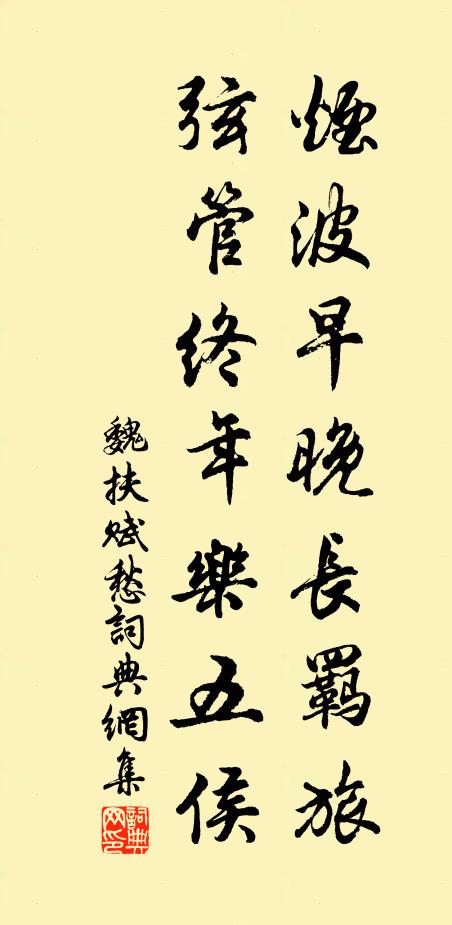 煙波早晚長羈旅
弦管終年樂五侯
魏扶賦愁詞典網集
詞典网印